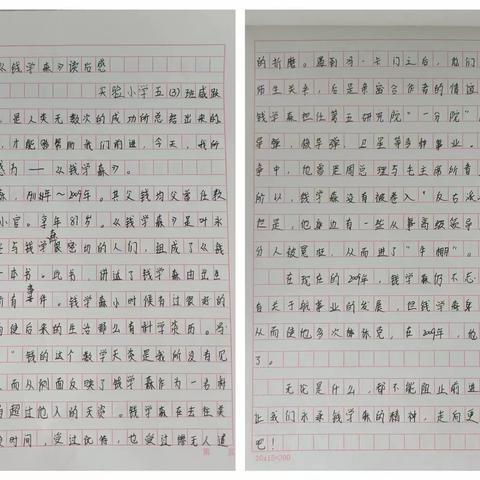 《钱学森》读后感
实验小学五(3)班戚
,是人类无数次的成功所总结出来的
,才能够帮助我们前进,今天,我所
感为——《钱学森》。
森,  年~2009年。其父钱均父曾任数
小官。享年87岁。《钱学森》是叶永
与钱学森很密切的人们,组成了《钱
一本书。此书,讲述了钱学森由出生
所有事件。钱学森小时候有过很好的
使后来的生活那么有科学资历。
"钱的这个数学天资是我所没有见
从而从侧面反映了钱学森作为一名科
超过他人的天资。钱学森在去往美
时间,受过优待,也受过惨无人道
第 页
的折磨。遇到冯·卡门之后,他们
师生关系,后是亲密合作者的情谊
钱学森担任第五研究院"一分院"
导弹,做导弹、卫星等多种事业。
争中,他常是周总理与毛主席所
所以,钱学森没有被卷入"反右派
但是,他身边有一些从事高级领导
分人被冤枉,从而进了"牛棚"。
在现在的2009年,钱学森仍不忘
自关于航事业的发展,但钱学森年
从而使他多次 休克,在2009年,他
了。
无论是什么,都不能阻止前进
让我们永承钱学森的精神,走向更
吧!
20x15=300